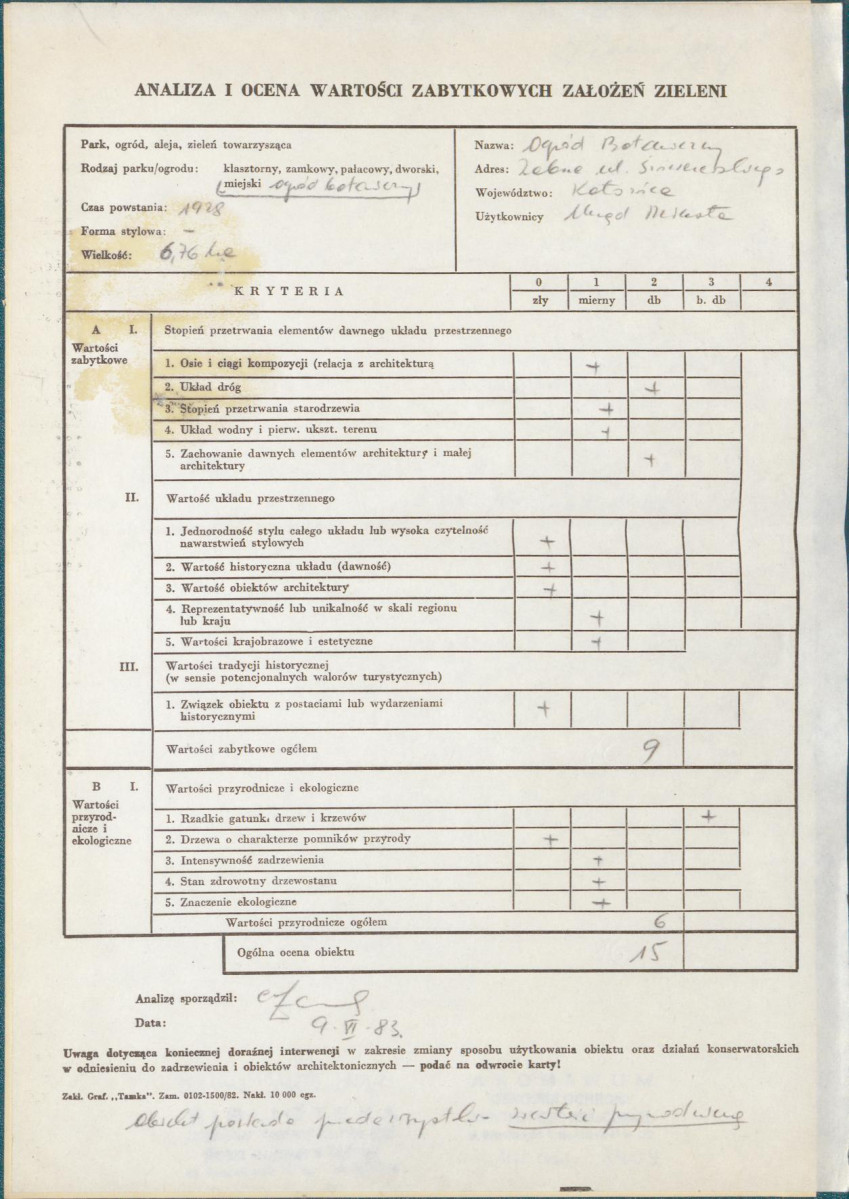 ANALIZA I OCENA WARTOŚCI ZABYTKOWYCH ZAŁOŻEŃ ZIELENI
Park, ogród, aleja, zieleń towarzysząca
Rodzaj parku/ogrodu: klasztorny, zamkowy, pałacowy, dworski,
miejski ogród botaniczny
Czas powstania: 1928
Forma stylowa: –
Wielkość: 6,76 ha
Nazwa: Ogród Botaniczny
Adres: Zabrze ul.
Województwo: Katowice
Użytkownicy Urząd Miasta
KRYTERIA
0 1 2 3 4
zły mierny db b. db
A I. Stopień przetrwania elementów dawnego układu przestrzennego
Wartości
zabytkowe
1. Osie i ciągi kompozycji (relacja z architekturą +
2. Układ dróg +
3. Stopień przetrwania starodrzewia +
4. Układ wodny i pierw. ukszt. terenu +
5. Zachowanie dawnych elementów architektury i małej
architektury +
II. Wartość układu przestrzennego
1. Jednorodność stylu całego układu lub wysoka czytelność
nawarstwień stylowych +
2. Wartość historyczna układu (dawność) +
3. Wartość obiektów architektury +
4. Reprezentatywność lub unikalność w skali regionu
lub kraju +
5. Wartości krajobrazowe i estetyczne +
III. Wartości tradycji historycznej
(w sensie potencjonalnych walorów turystycznych)
1. Związek obiektu z postaciami lub wydarzeniami
historycznymi +
Wartości zabytkowe ogółem 9
B I. Wartości przyrodnicze i ekologiczne
Wartości
przyrod-
nicze i
ekologiczne
1. Rzadkie gatunki drzew i krzewów +
2. Drzewa o charakterze pomników przyrody +
3. Intensywność zadrzewienia +
4. Stan zdrowotny drzewostanu +
5. Znaczenie ekologiczne +
Wartości przyrodnicze ogółem 6
Ogólna ocena obiektu 15
Analizę sporządził:
Data: 9. VI. 83.
Uwaga dotycząca koniecznej doraźnej interwencji w zakresie zmiany sposobu użytkowania obiektu oraz działań konserwatorskich
w odniesieniu do zadrzewienia i obiektów architektonicznych — podać na odwrocie karty!
Zakł. Graf. „Tamka". Zam. 0102-1500/82. Nakł. 10 000 egz.
Obiekt posiada przede wszystkim wartość przyrodniczą